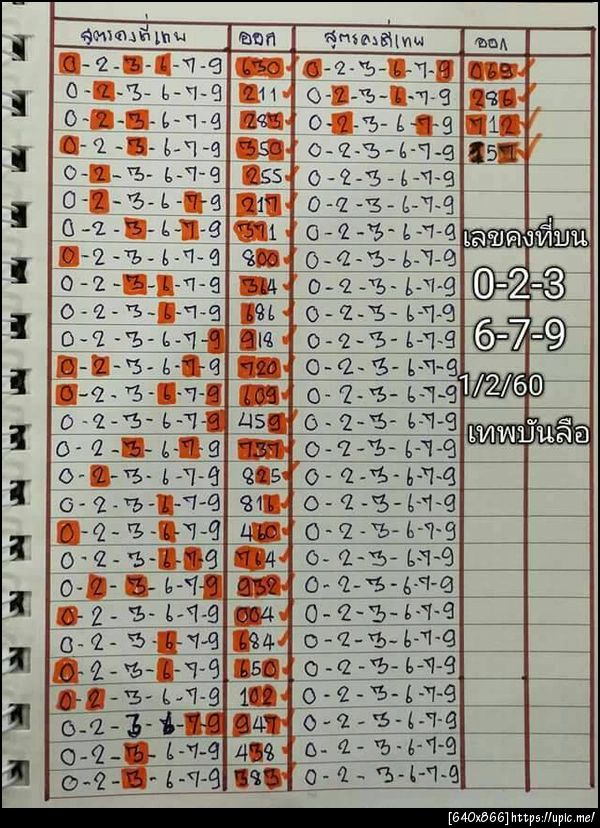 สูตรคงที่เทพ ออก สูตรคงที่เทพ ออก
0-2-3-6-7-9 630 0-2-3-6-7-9 069
0-2-3-6-7-9 211 0-2-3-6-7-9 286
0-2-3-6-7-9 283 0-2-3-6-7-9 712
0-2-3-6-7-9 350 0-2-3-6-7-9 157
0-2-3-6-7-9 255 0-2-3-6-7-9
0-2-3-6-7-9 217 0-2-3-6-7-9
0-2-3-6-7-9 371 0-2-3-6-7-9
เลขคงที่บน
0-2-3-6-7-9 800 0-2-3-6-7-9
0-2-3-6-7-9 364 0-2-3-6-7-9
0-2-3
0-2-3-6-7-9 686 0-2-3-6-7-9
0-2-3-6-7-9 918 0-2-3-6-7-9
6-7-9
0-2-3-6-7-9 720 0-2-3-6-7-9
0-2-3-6-7-9 609 0-2-3-6-7-9
1/2/60
0-2-3-6-7-9 459 0-2-3-6-7-9
เทพบันลือ
0-2-3-6-7-9 737 0-2-3-6-7-9
0-2-3-6-7-9 825 0-2-3-6-7-9
0-2-3-6-7-9 816 0-2-3-6-7-9
0-2-3-6-7-9 460 0-2-3-6-7-9
0-2-3-6-7-9 764 0-2-3-6-7-9
0-2-3-6-7-9 932 0-2-3-6-7-9
0-2-3-6-7-9 004 0-2-3-6-7-9
0-2-3-6-7-9 684 0-2-3-6-7-9
0-2-3-6-7-9 650 0-2-3-6-7-9
0-2-3-6-7-9 102 0-2-3-6-7-9
0-2-3-6-7-9 947 0-2-3-6-7-9
0-2-3-6-7-9 438 0-2-3-6-7-9
0-2-3-6-7-9 383 0-2-3-6-7-9
[640x866]https://upic.me/